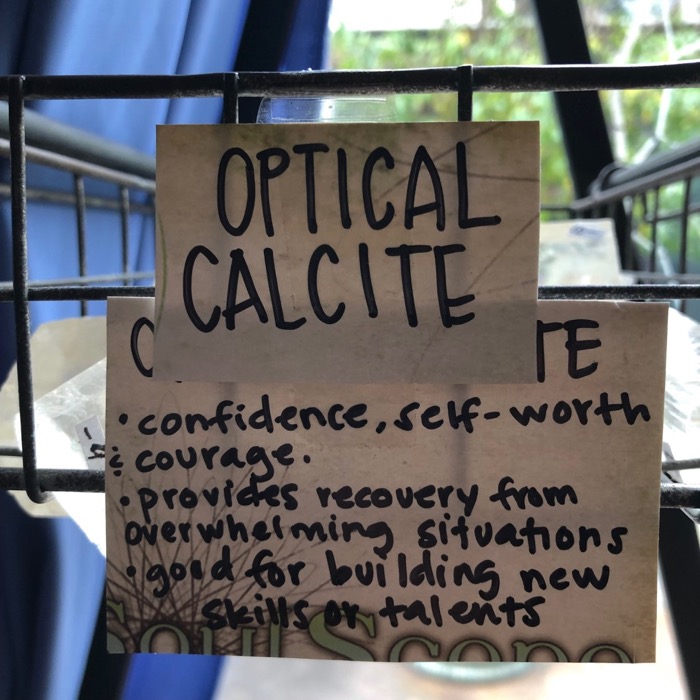 OPTICAL
CALCITE
C TE
• confidence, self-worth
& courage.
• provides recovery from
overwhelming situations
• good for building new
skills or talents
SoulScope